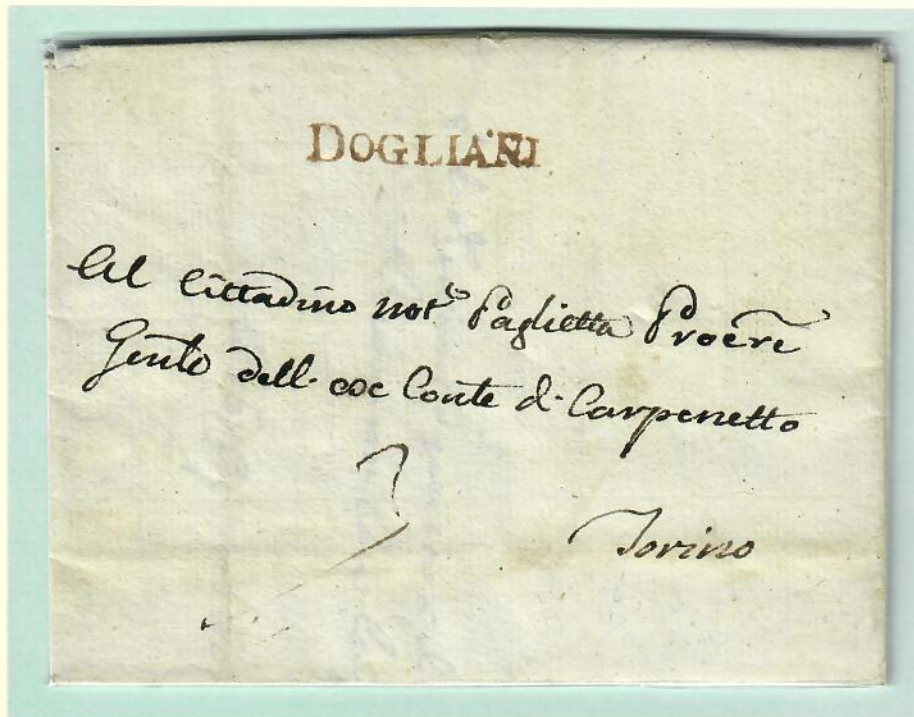 DOGLIANI
Al Cittadino not.º Paglietta
Gente dell' exc Conte di Carpenetto
Torino